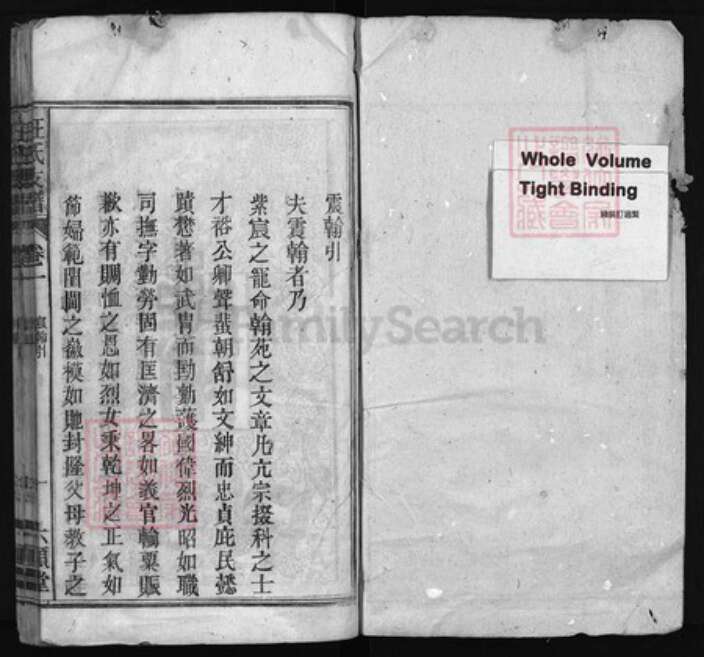 宸翰引
夫宸翰者乃
紫宸之寵命翰苑之文章凡亢宗掇科之士
才裕公卿聲蜚朝野如文紳而忠貞庇民懋
蹟懋著如武胄而勤護國偉烈光昭如職
司撫字勤勞固有匡濟之畧如義官輸粟賑
歉亦有賙恤之恩如烈女秉乾坤之正氣如
節婦範閨閫之徽模如貤封隆父母教子之
汪氏支譜
卷一
宸翰引
一
六順堂
Whole Volume
Tight Binding